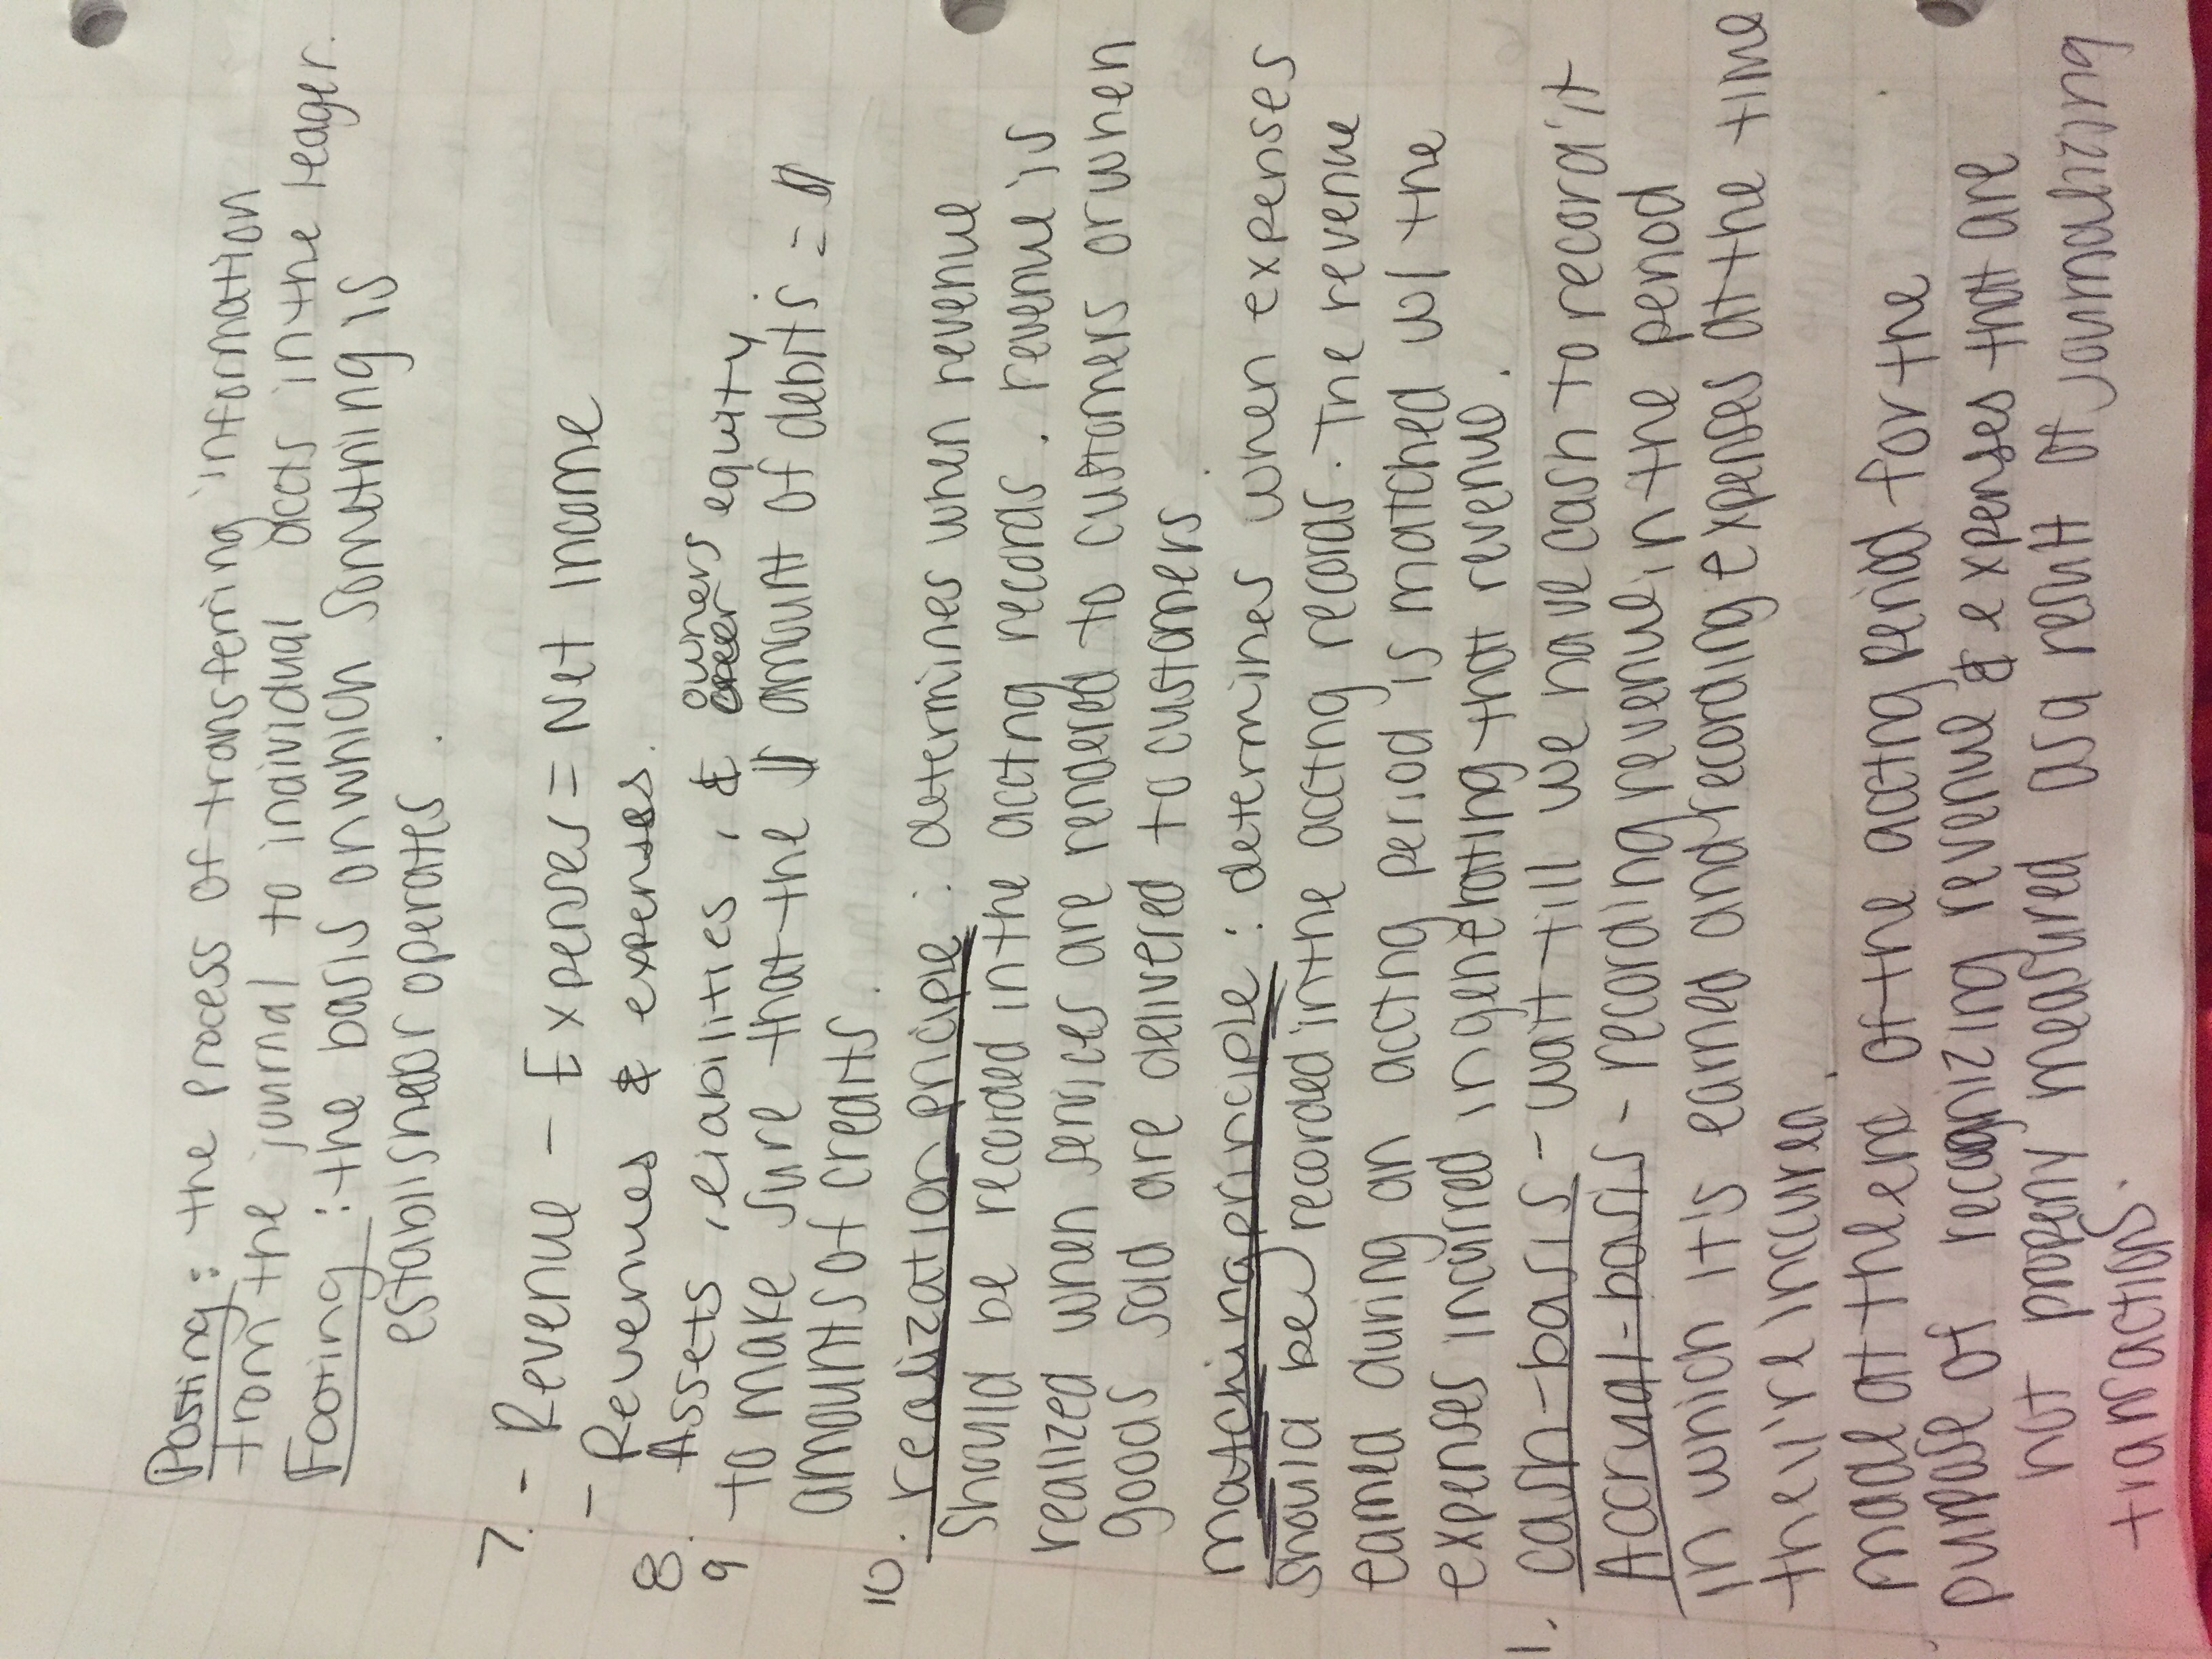 Posting: the process of transferring information
from the journal to individual accts in the leager.
Footing: the basis on which something is
establishedor operates.
7. - Revenue - Expenses = Net Income
- Revenues & expenses.
8. Assets, liabilities, & owners equity
9 - to make sure that the $ amount of debits = $
amounts of credits.
10. realization priciple: determines when revenue
should be recorded in the accting records. revenue is
realized when services are rendered to customers or when
goods sold are delivered to customers.
matching principle: determines when expenses
should be recorded in the accting records. The revenue
earned during an accting period is matched w/ the
expenses incurred in generating that revenue.
1. cash-basis - wait till we have cash to record it
Accrual-basis - recording revenue in the period
in which its earned and recording expenses at the time
they're incurred.
made at the end of the accting period for the
purpose of recognizing revenue & expenses that are
not properly measured as a result of journalizing
transactions.